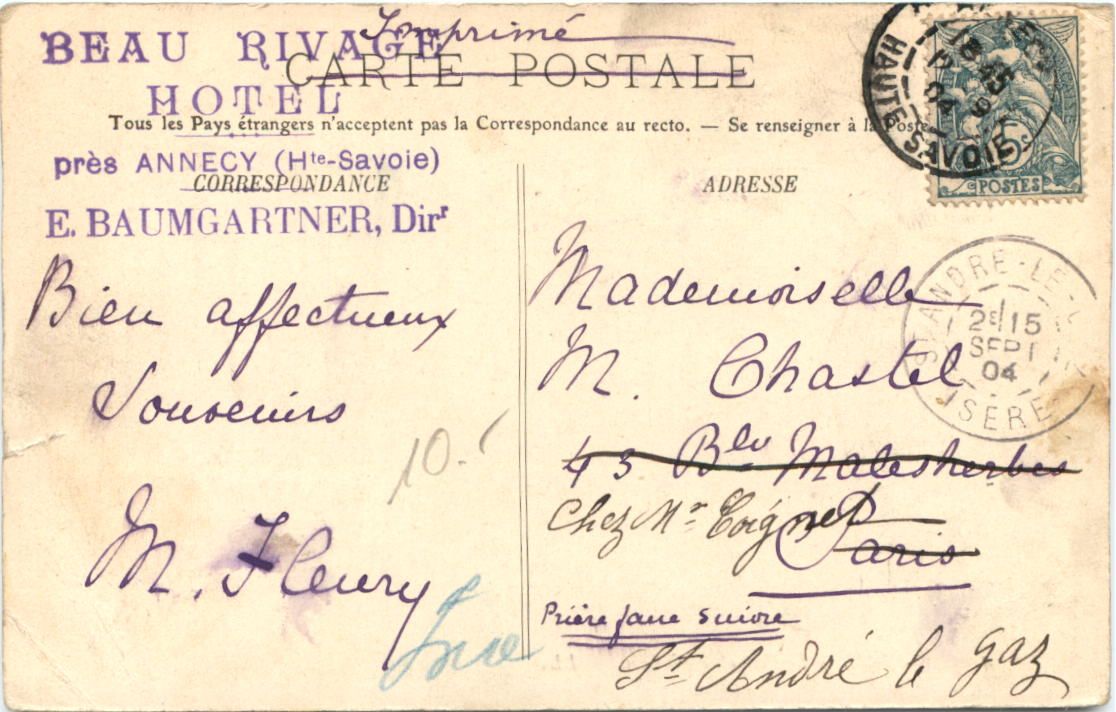 Imprimé
BEAU RIVAGE
HOTEL
près ANNECY (Hte-Savoie)
E. BAUMGARTNER, Dirr
CARTE POSTALE
Tous les Pays étrangers n'acceptent pas la Correspondance au recto. — Se renseigner à la Poste
CORRESPONDANCE
Bien affectueux
Souvenirs
M. Fleury
10.-
ADRESSE
Mademoiselle
M. Chastel
43 Blv Malesherbes
Chez Mr Coignet
Paris
Prière faire suivre
St André le Gaz
HAUTE SAVOIE
04
5c
POSTES
ST ANDRE-LE-
2E/15
SEPT
04
ISERE